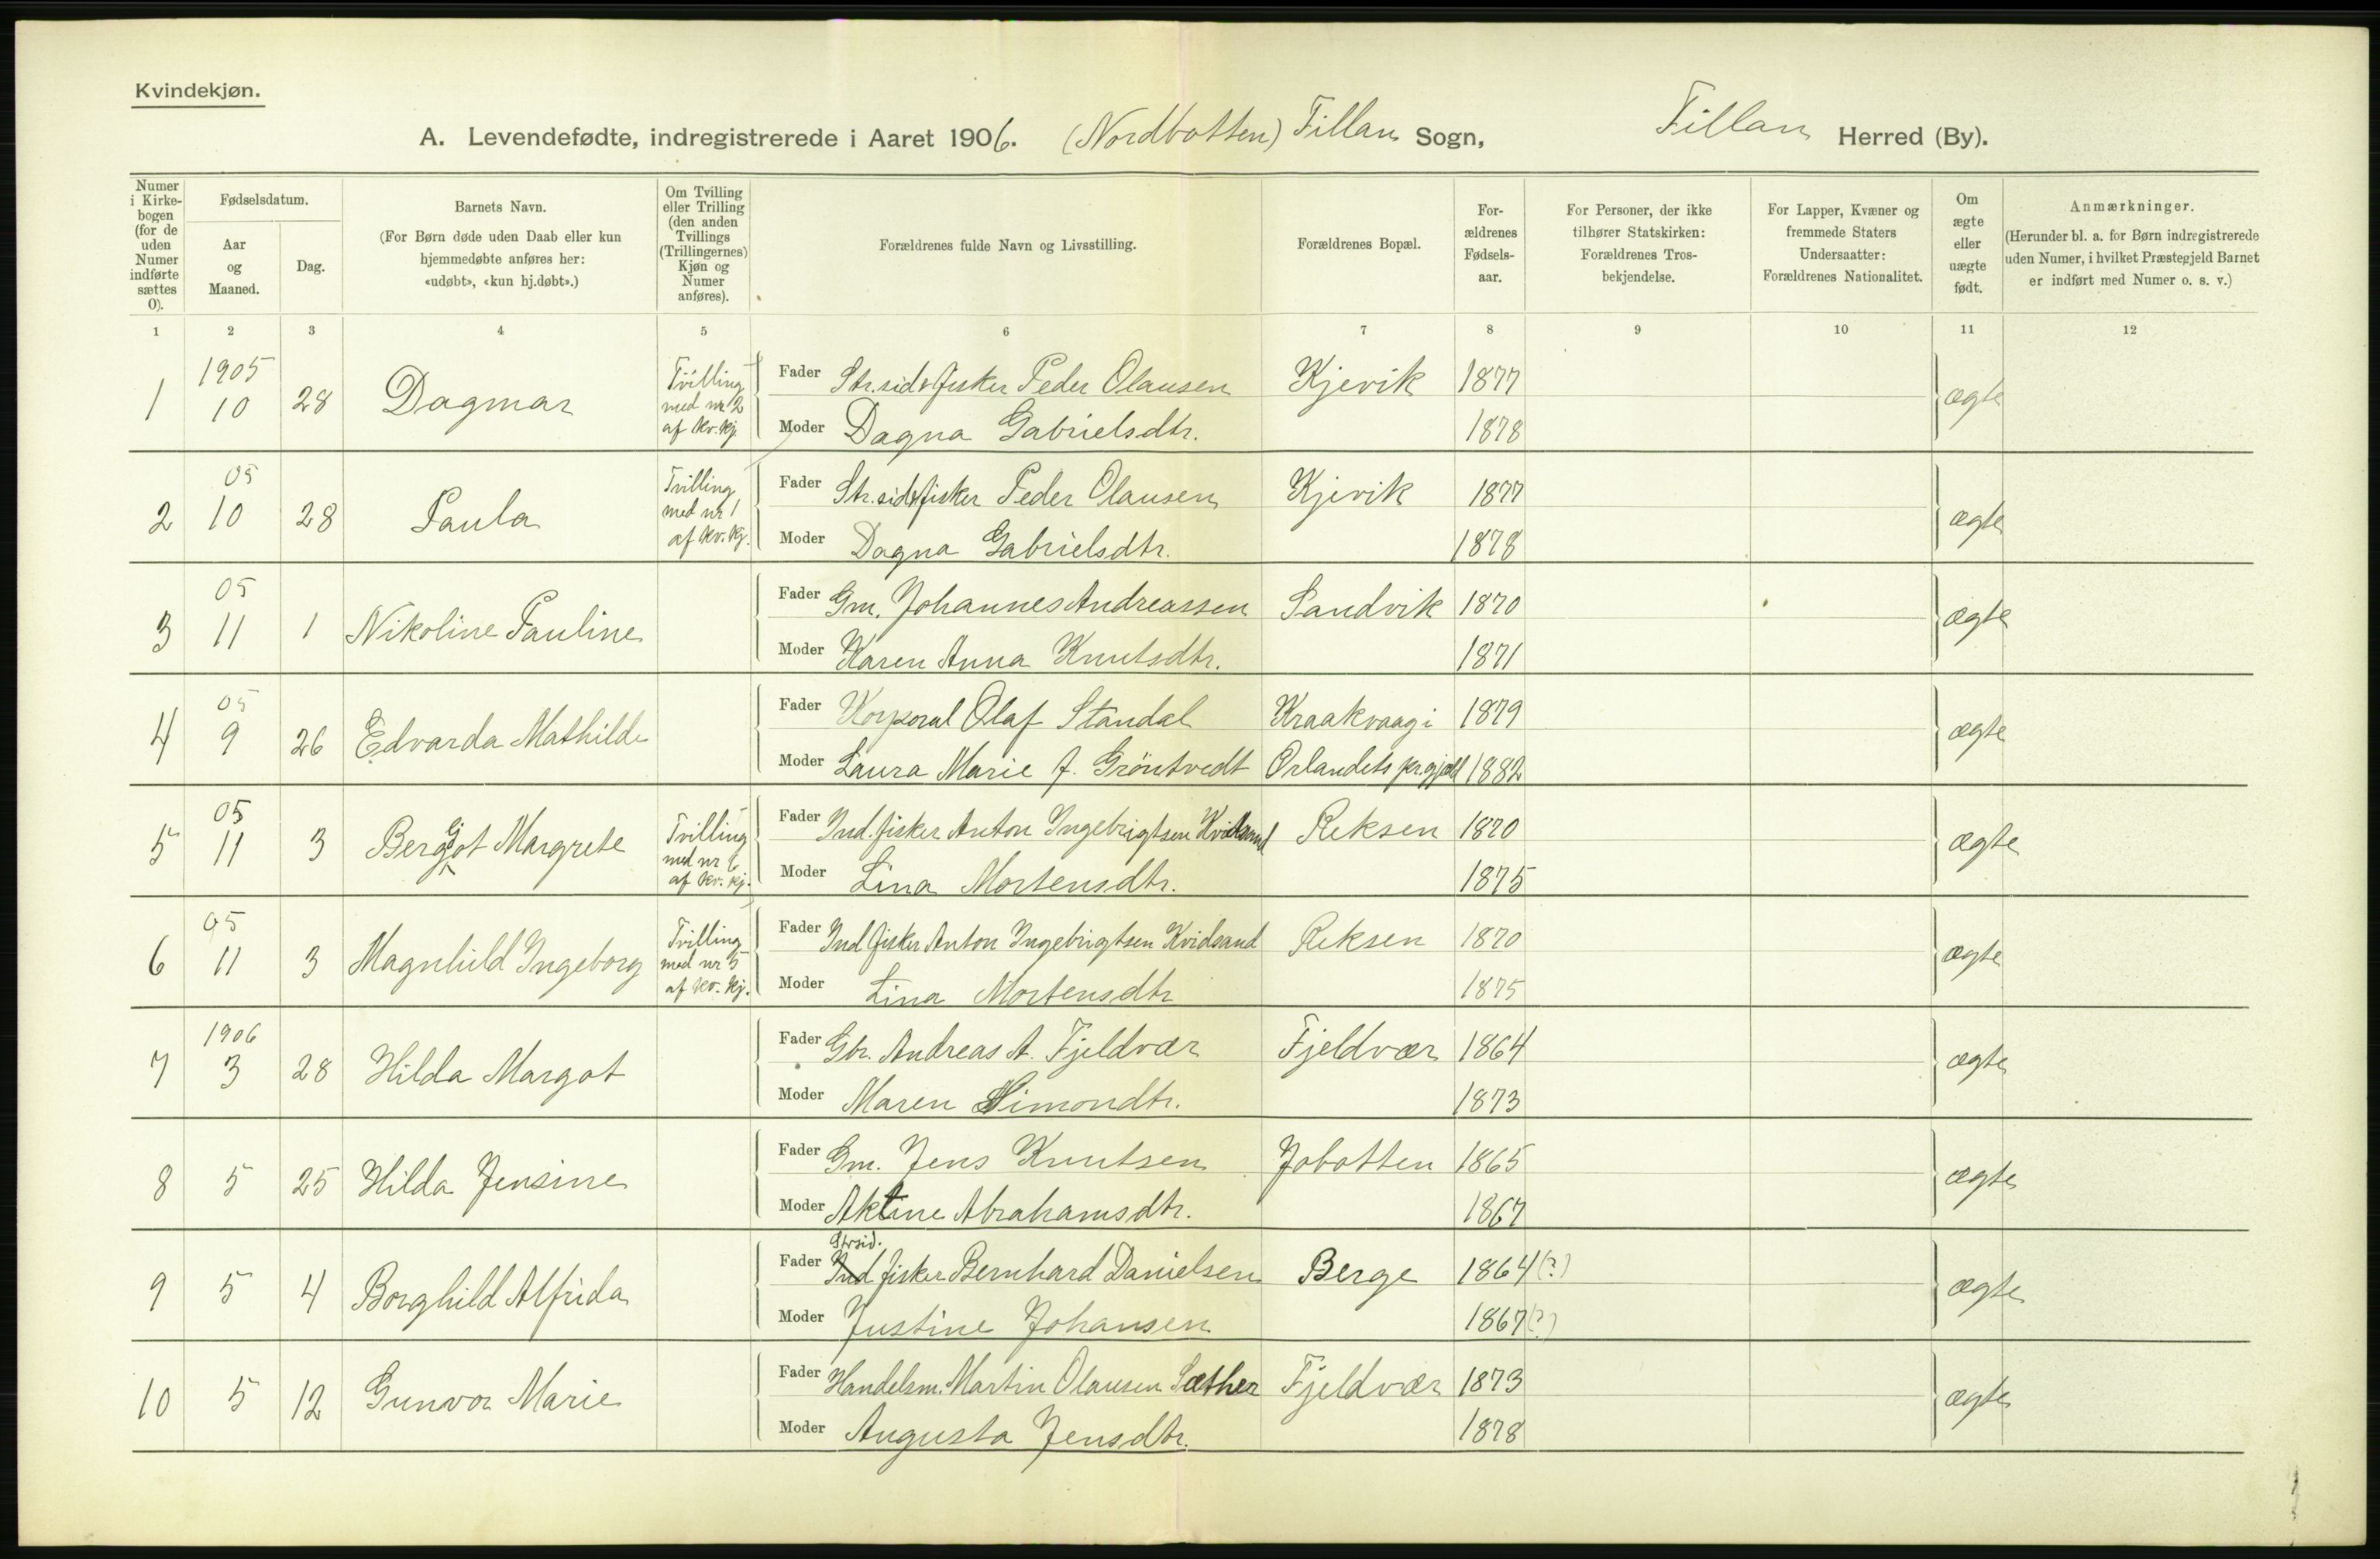 Kvindekjøn.
A. Levendefødte, indregistrerede i Aaret 1906. (Nordbotten) Fillan Sogn, Fillan Herred (By).
Numer i Kirkebogen (for de uden Numer indførte sættes 0).
Fødselsdatum.
Aar og Maaned.
Dag.
Barnets Navn.
(For Børn døde uden Daab eller kun hjemmedøbte anføres her: «udøbt», «kun hj.døbt».)
Om Tvilling eller Trilling (den anden Tvillings (Trillingernes) Kjøn og Numer anføres).
Forældrenes fulde Navn og Livsstilling.
Forældrenes Bopæl.
Forældrenes Fødselsaar.
For Personer, der ikke tilhører Statskirken: Forældrenes Trosbekjendelse.
For Lapper, Kvæner og fremmede Staters Undersaatter: Forældrenes Nationalitet.
Om ægte eller uægte født.
Anmærkninger.
(Herunder bl. a. for Børn indregistrerede uden Numer, i hvilket Præstegjeld Barnet er indført med Numer o. s. v.)
1 2 3 4 5 6 7 8 9 10 11 12
1 1905 10 28 Dagmar Tvilling med nr 2 af kv. kj. Fader Str.sid & fisker Peder Olausen Kjevik 1877 ægte
Moder Dagna Gabrielsdtr. 1878
2 05 10 28 Paula Tvilling med nr 1 af kv. kj. Fader Str.sid & fisker Peder Olausen Kjevik 1877 ægte
Moder Dagna Gabrielsdtr. 1878
3 05 11 1 Nikoline Pauline Fader Gm. Johannes Andreassen Sandvik 1870 ægte
Moder Karen Anna Knutsdtr. 1871
4 05 9 26 Edvarda Mathilde Fader Korporal Olaf Standal Kraakvaag i 1879 ægte
Moder Laura Marie f. Gröntvedt Ørlandets pr.gjeld 1882
5 05 11 3 Bergjot Margrete Tvilling med nr 6 af kv. kj. Fader Ind. fisker Anton Ingebrigtsen Kvidsand Reksen 1870 ægte
Moder Lina Mortensdtr. 1875
6 05 11 3 Magnhild Ingeborg Tvilling med nr 5 af kv. kj. Fader Ind fisker Anton Ingebrigtsen Kvidsand Reksen 1870 ægte
Moder Lina Mortensdtr 1875
7 1906 3 28 Hilda Margot Fader Gbr. Andreas A. Fjeldvær Fjeldvær 1864 ægte
Moder Maren Simondtr. 1873
8 5 25 Hilda Jensine Fader Gm. Jens Knutsen Jobotten 1865 ægte
Moder Aktine Abrahamsdtr. 1867
Strsid.
9 5 4 Borghild Alfrida Fader Ind fisker Bernhard Danielsen Berge 1864 (?) ægte
Moder Justine Johansen 1867 (?)
10 5 12 Gunvor Marie Fader Handelsm. Martin Olausen Sæther Fjeldvær 1873 ægte
Moder Augusta Jensdtr. 1878